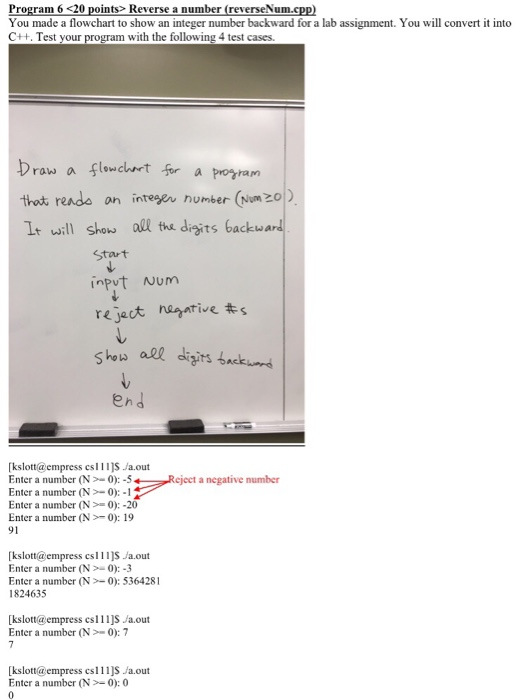 Program 6 <20 points> Reverse a number (reverseNum.cpp)
You made a flowchart to show an integer number backward for a lab assignment. You will convert it into
C++. Test your program with the following 4 test cases.
Draw a flowchart for a program
that reads an integer number (Num ≥ 0).
It will show all the digits backward.
Start
↓
input Num
↓
reject negative #s
↓
show all digits backward
↓
end
[kslott@empress cs111]$ ./a.out
Enter a number (N >= 0): -5 Reject a negative number
Enter a number (N >= 0): -1
Enter a number (N >= 0): -20
Enter a number (N >= 0): 19
91
[kslott@empress cs111]$ ./a.out
Enter a number (N >= 0): -3
Enter a number (N >= 0): 5364281
1824635
[kslott@empress cs111]$ ./a.out
Enter a number (N >= 0): 7
7
[kslott@empress cs111]$ ./a.out
Enter a number (N >= 0): 0
0